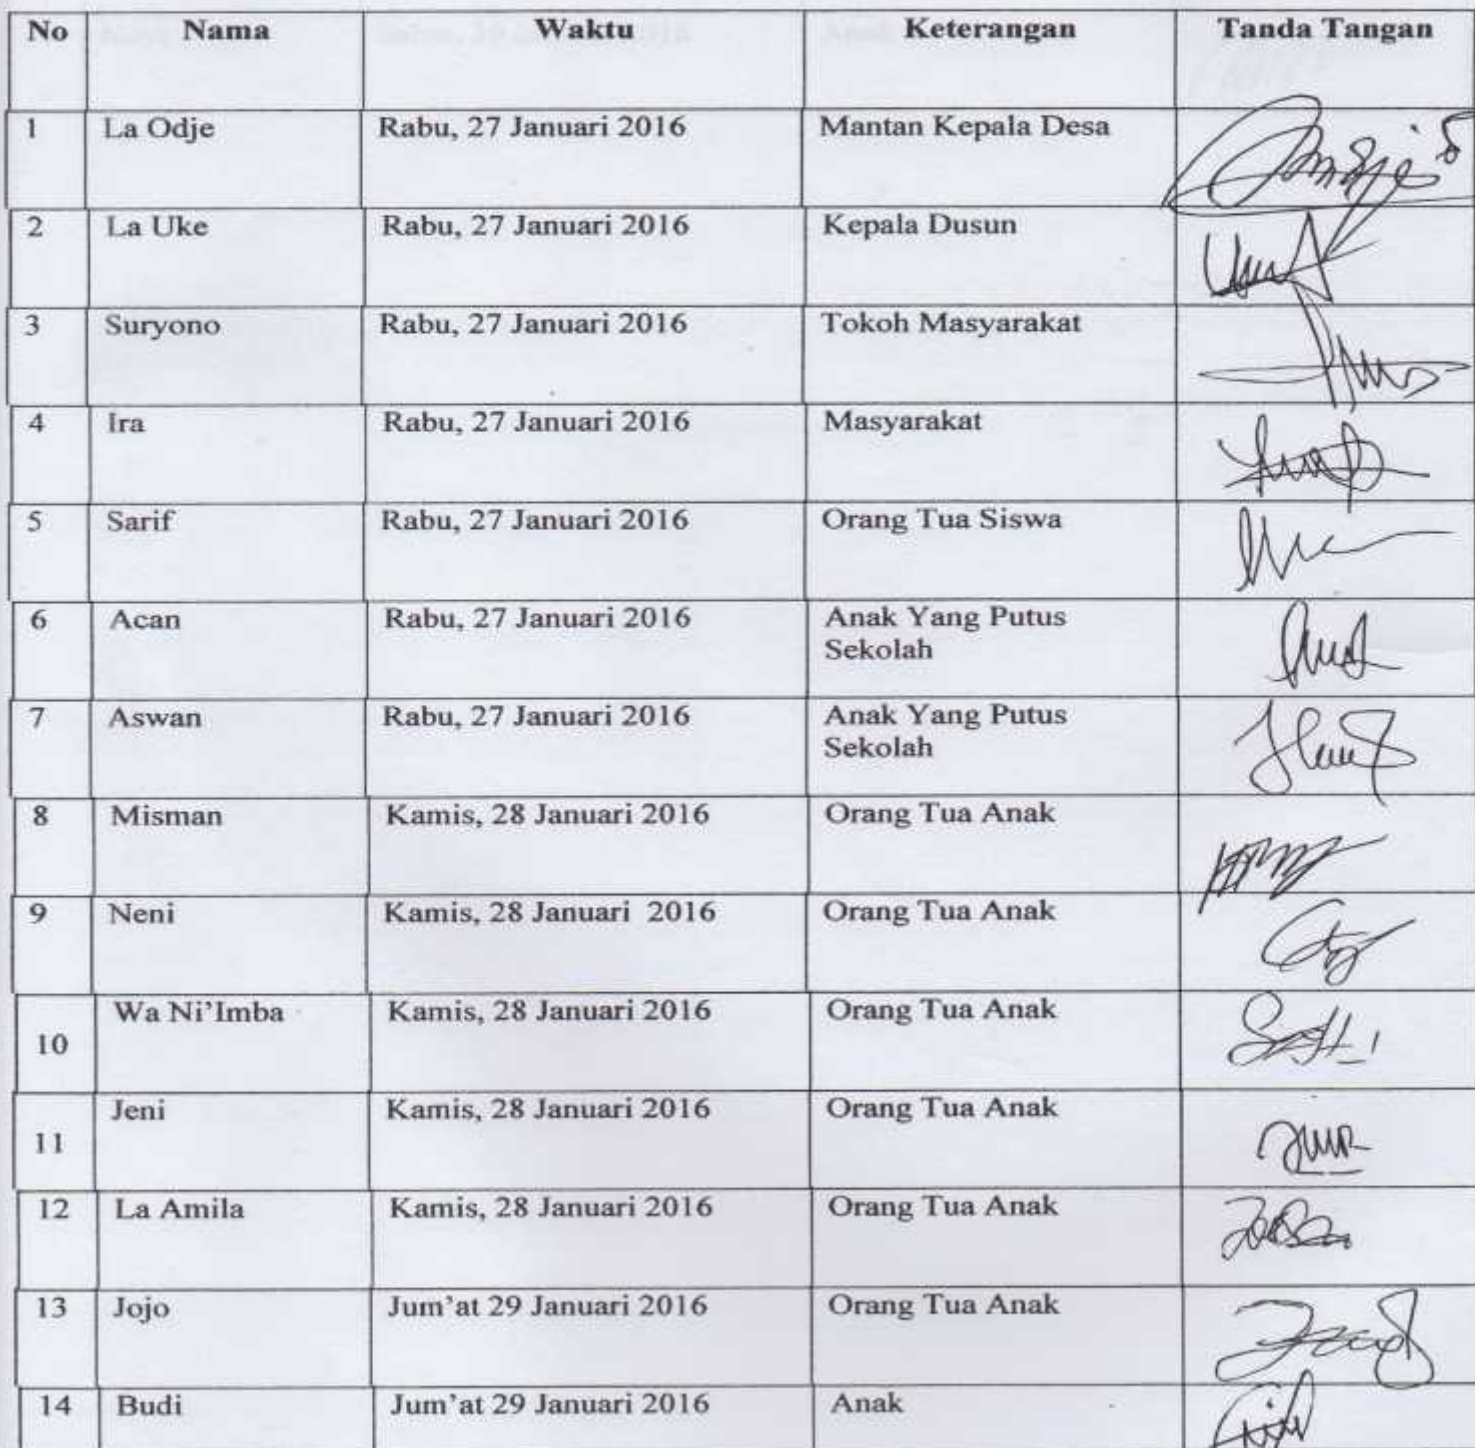 No Nama Waktu Keterangan Tanda Tangan
1 La Odje Rabu, 27 Januari 2016 Mantan Kepala Desa
2 La Uke Rabu, 27 Januari 2016 Kepala Dusun
3 Suryono Rabu, 27 Januari 2016 Tokoh Masyarakat
4 Ira Rabu, 27 Januari 2016 Masyarakat
5 Sarif Rabu, 27 Januari 2016 Orang Tua Siswa
6 Acan Rabu, 27 Januari 2016 Anak Yang Putus
Sekolah
7 Aswan Rabu, 27 Januari 2016 Anak Yang Putus
Sekolah
8 Misman Kamis, 28 Januari 2016 Orang Tua Anak
9 Neni Kamis, 28 Januari 2016 Orang Tua Anak
10 Wa Ni'Imba Kamis, 28 Januari 2016 Orang Tua Anak
11 Jeni Kamis, 28 Januari 2016 Orang Tua Anak
12 La Amila Kamis, 28 Januari 2016 Orang Tua Anak
13 Jojo Jum'at 29 Januari 2016 Orang Tua Anak
14 Budi Jum'at 29 Januari 2016 Anak